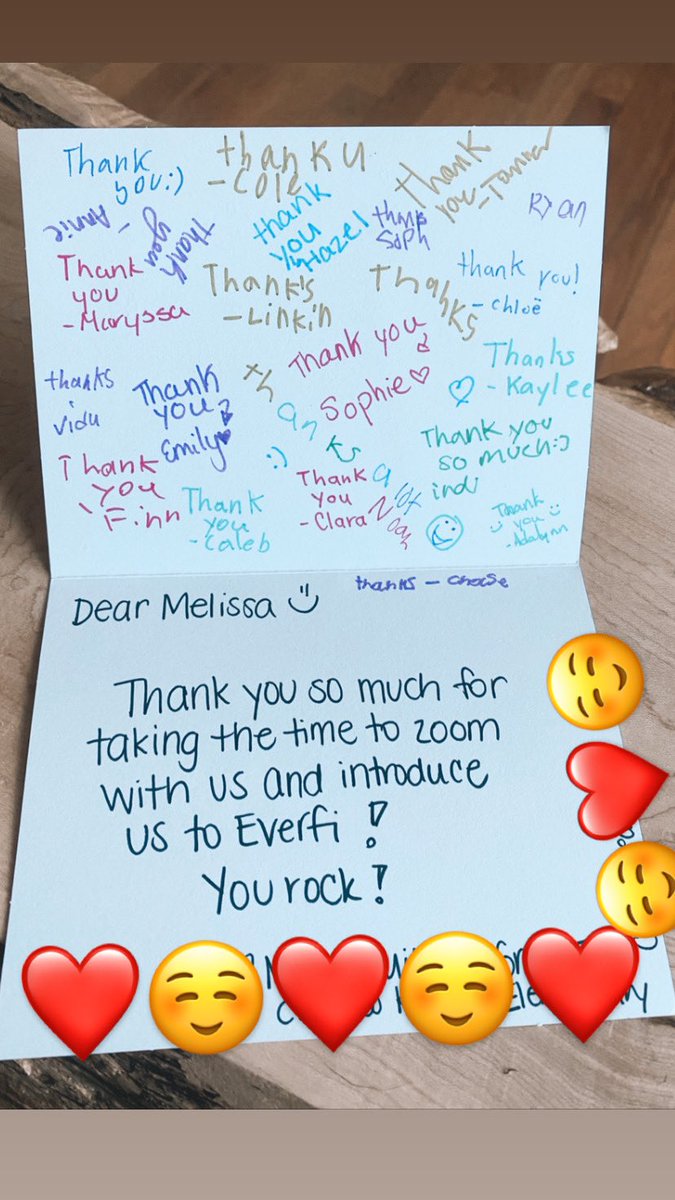 Thank
you:)
thanku
-Cole
thank
you-
Ryan
thank
you
- Annie
thank
you
Hazel
Soph
Thank
you
-Maryssa
Thank's
-Linkin
Thanks
thank you!
- Chloë
thanks
- vidu
Thank
you
Emily
thanks
:)
Thank you
Sophie
Thanks
- Kaylee
Thank you
so much:)
indi
Thank
you
- Finn
Thank
you
- Caleb
Thank
you
- Clara
Thanks a lot
Noah
Thank
you
- Adalynn
thanks -
Dear Melissa
Thank you so much for
taking the time to zoom
with us and introduce
us to Everfi!
You rock!